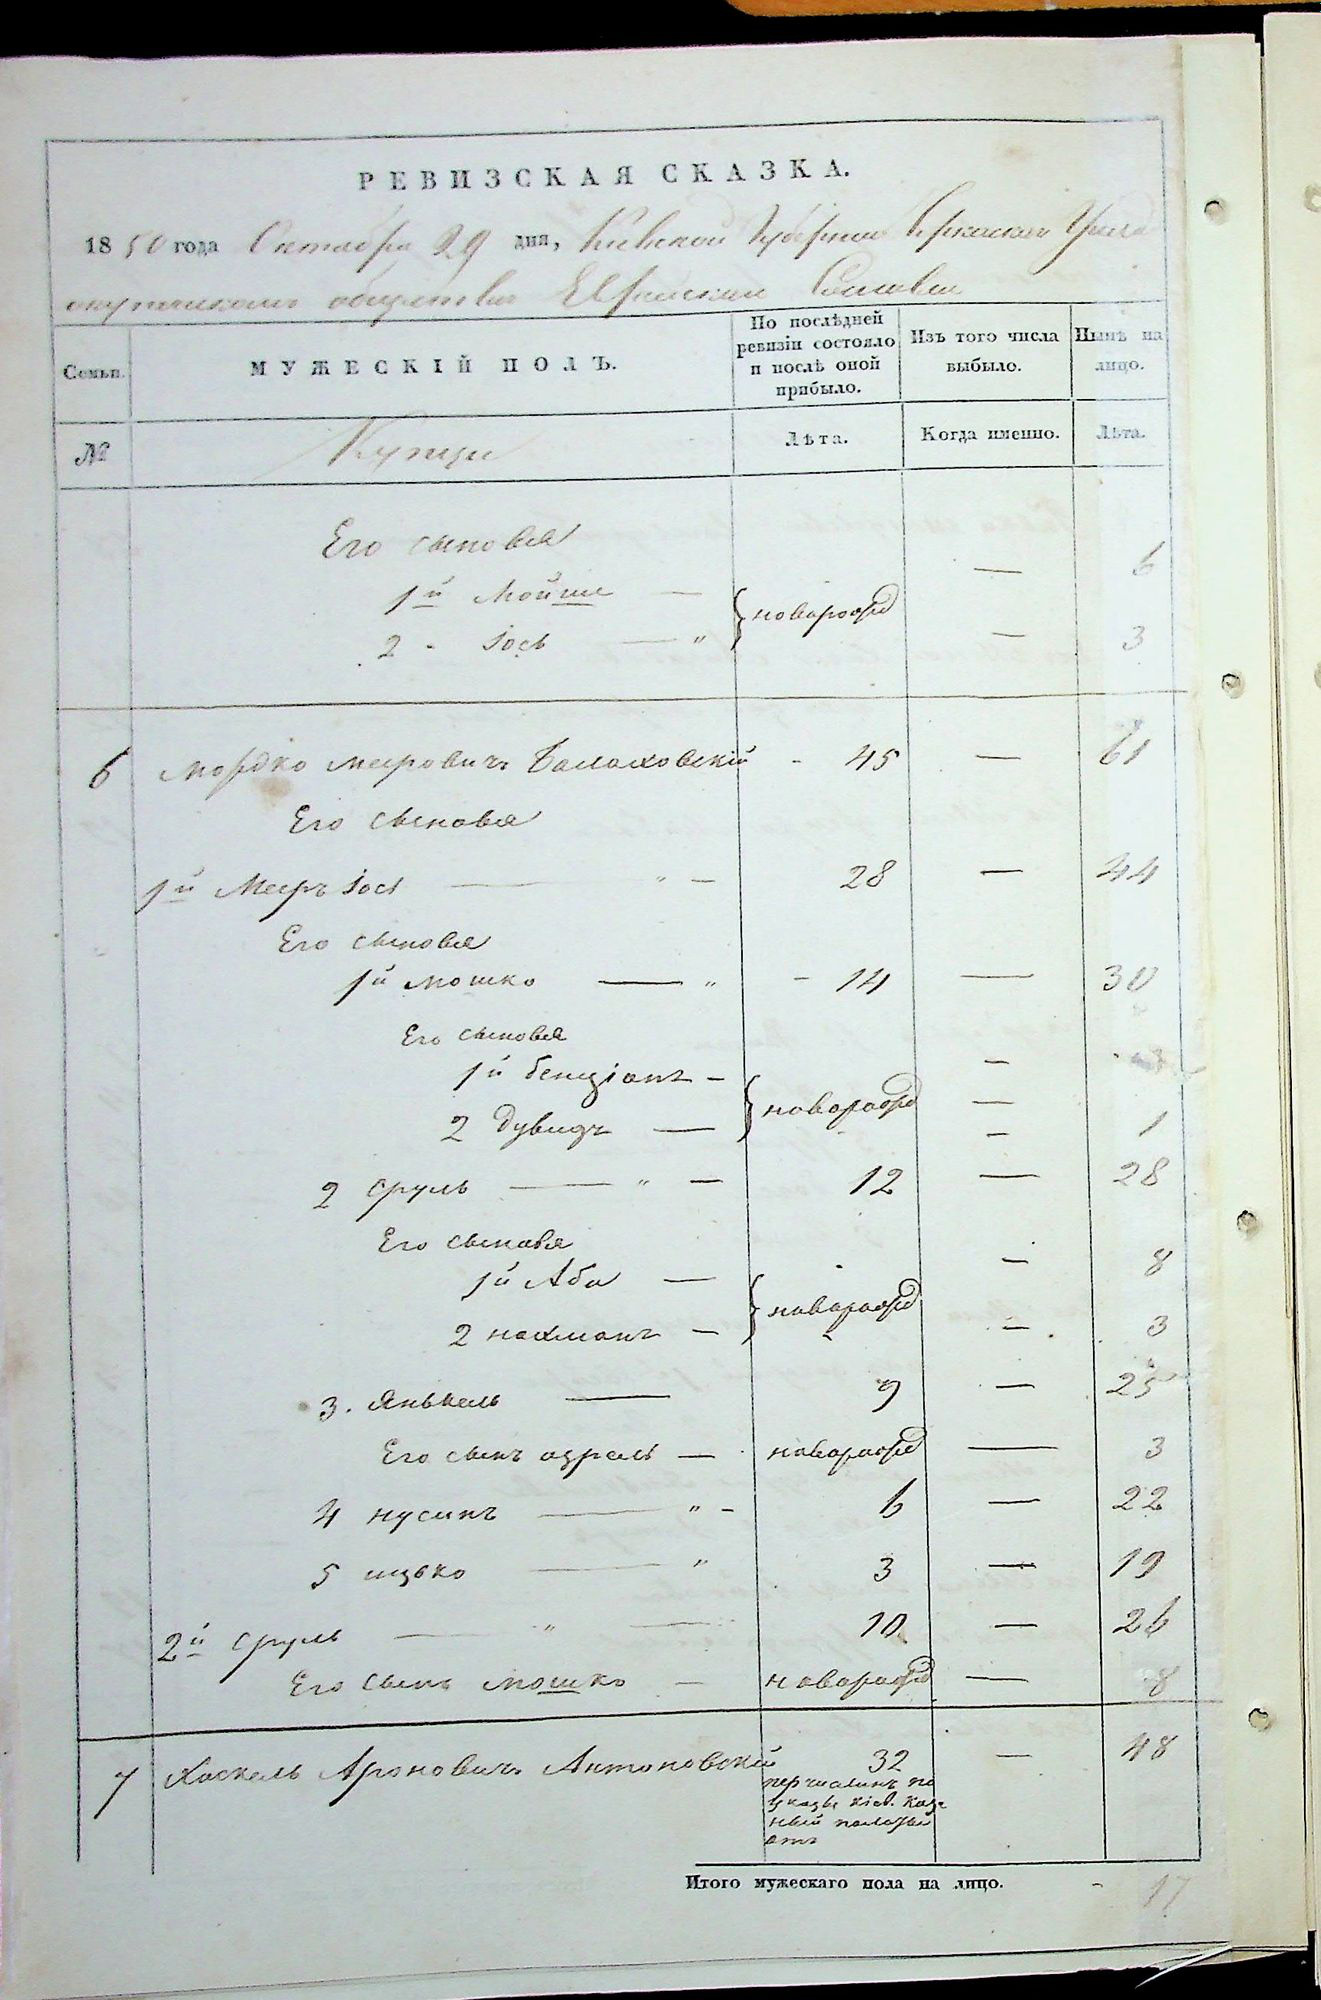 РЕВИЗСКАЯ СКАЗКА.
1850 года Октября 29 дня, Кіевской Губерніи Уезда
обществa Еврейскаго Сословія
Семьи.
МУЖЕСКІЙ ПОЛЪ.
По послѣдней ревизіи состояло и послѣ оной прибыло.
Изъ того числа выбыло.
Нынѣ на лицо.
№
Купцы
Лѣта.
Когда именно.
Лѣта.
Его сыновья
1й Мойше — новорожд — 6
2 - Іось — " — 3
6 Мордко Меерович Балаховскій - 45 — 61
Его сыновья
1й Меер Іось — " — 28 — 44
Его сыновья
1й Мошко — " - 14 — 30
Его сыновья
1й Бенціонъ — новорожд — 3
2 Дувидъ — — 1
2 Сруль — " — 12 — 28
Его сыновья
1й Аба — новорожд — 8
2 Нахманъ — — 3
3. Янькель — 9 — 25
Его сынъ Азрель — новорожд — 3
4 Нусинъ — " - 6 — 22
5 Ицько — " 3 — 19
2й Сруль — " — 10 — 26
Его сынъ Мошко — новорожд — 8
7 Хаскель Аронович Антоновскій 32 — 48
перечислинъ по
указу Кіев. Казе
ный
Итого мужескаго пола на лицо. - 17